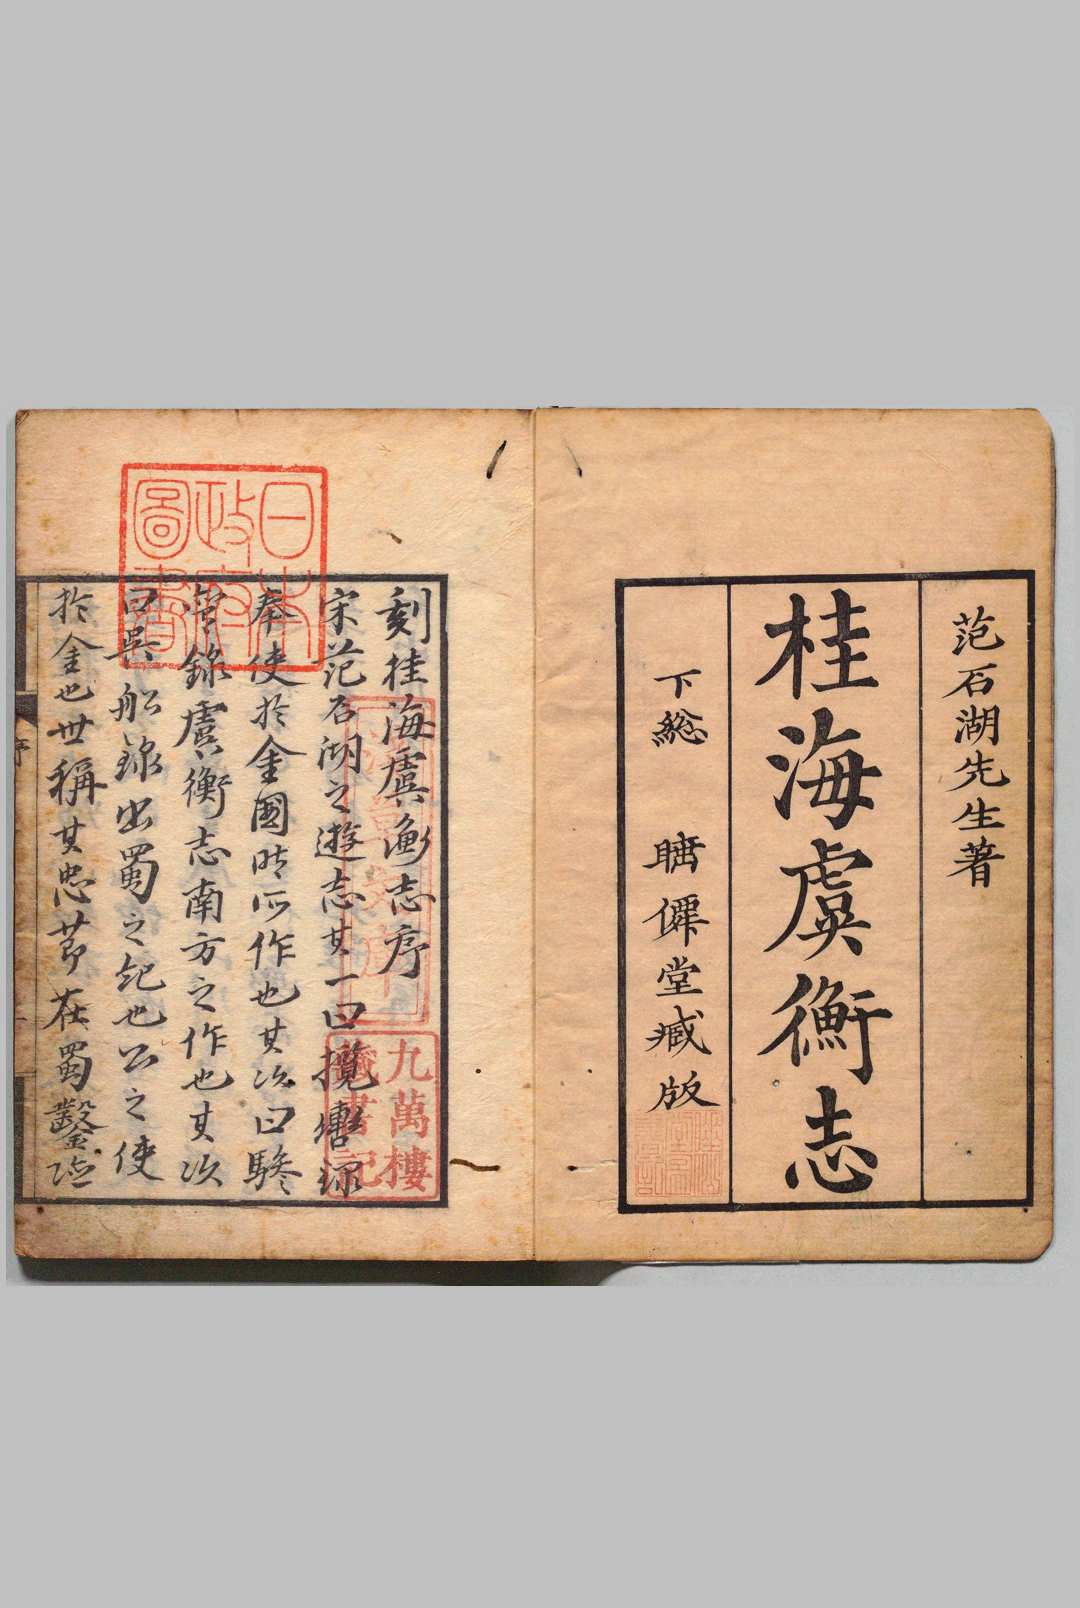 范石湖先生著
桂海虞衡志
下總 䏽僊堂臧版
刻桂海虞衡志序
宋范石湖之遊志其一曰攬轡録
奉使於金國時所作也其次曰驂
鸞錄虞衡志南方之作也其次
曰吳船録出蜀之記也公之使
於金也世稱其忠節在蜀鑿
序
日本
政府
圖書
九萬樓
藏書記